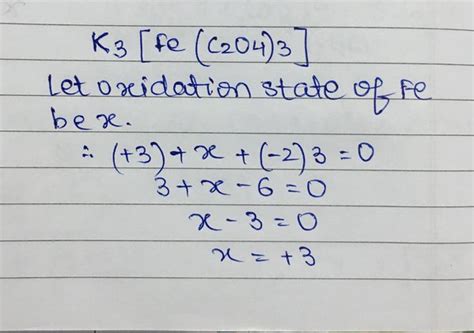 K3 [Fe (C2O4)3]
Let oxidation state of Fe
be x.
∴ (+3) + x + (-2) 3 = 0
3 + x - 6 = 0
x - 3 = 0
x = +3